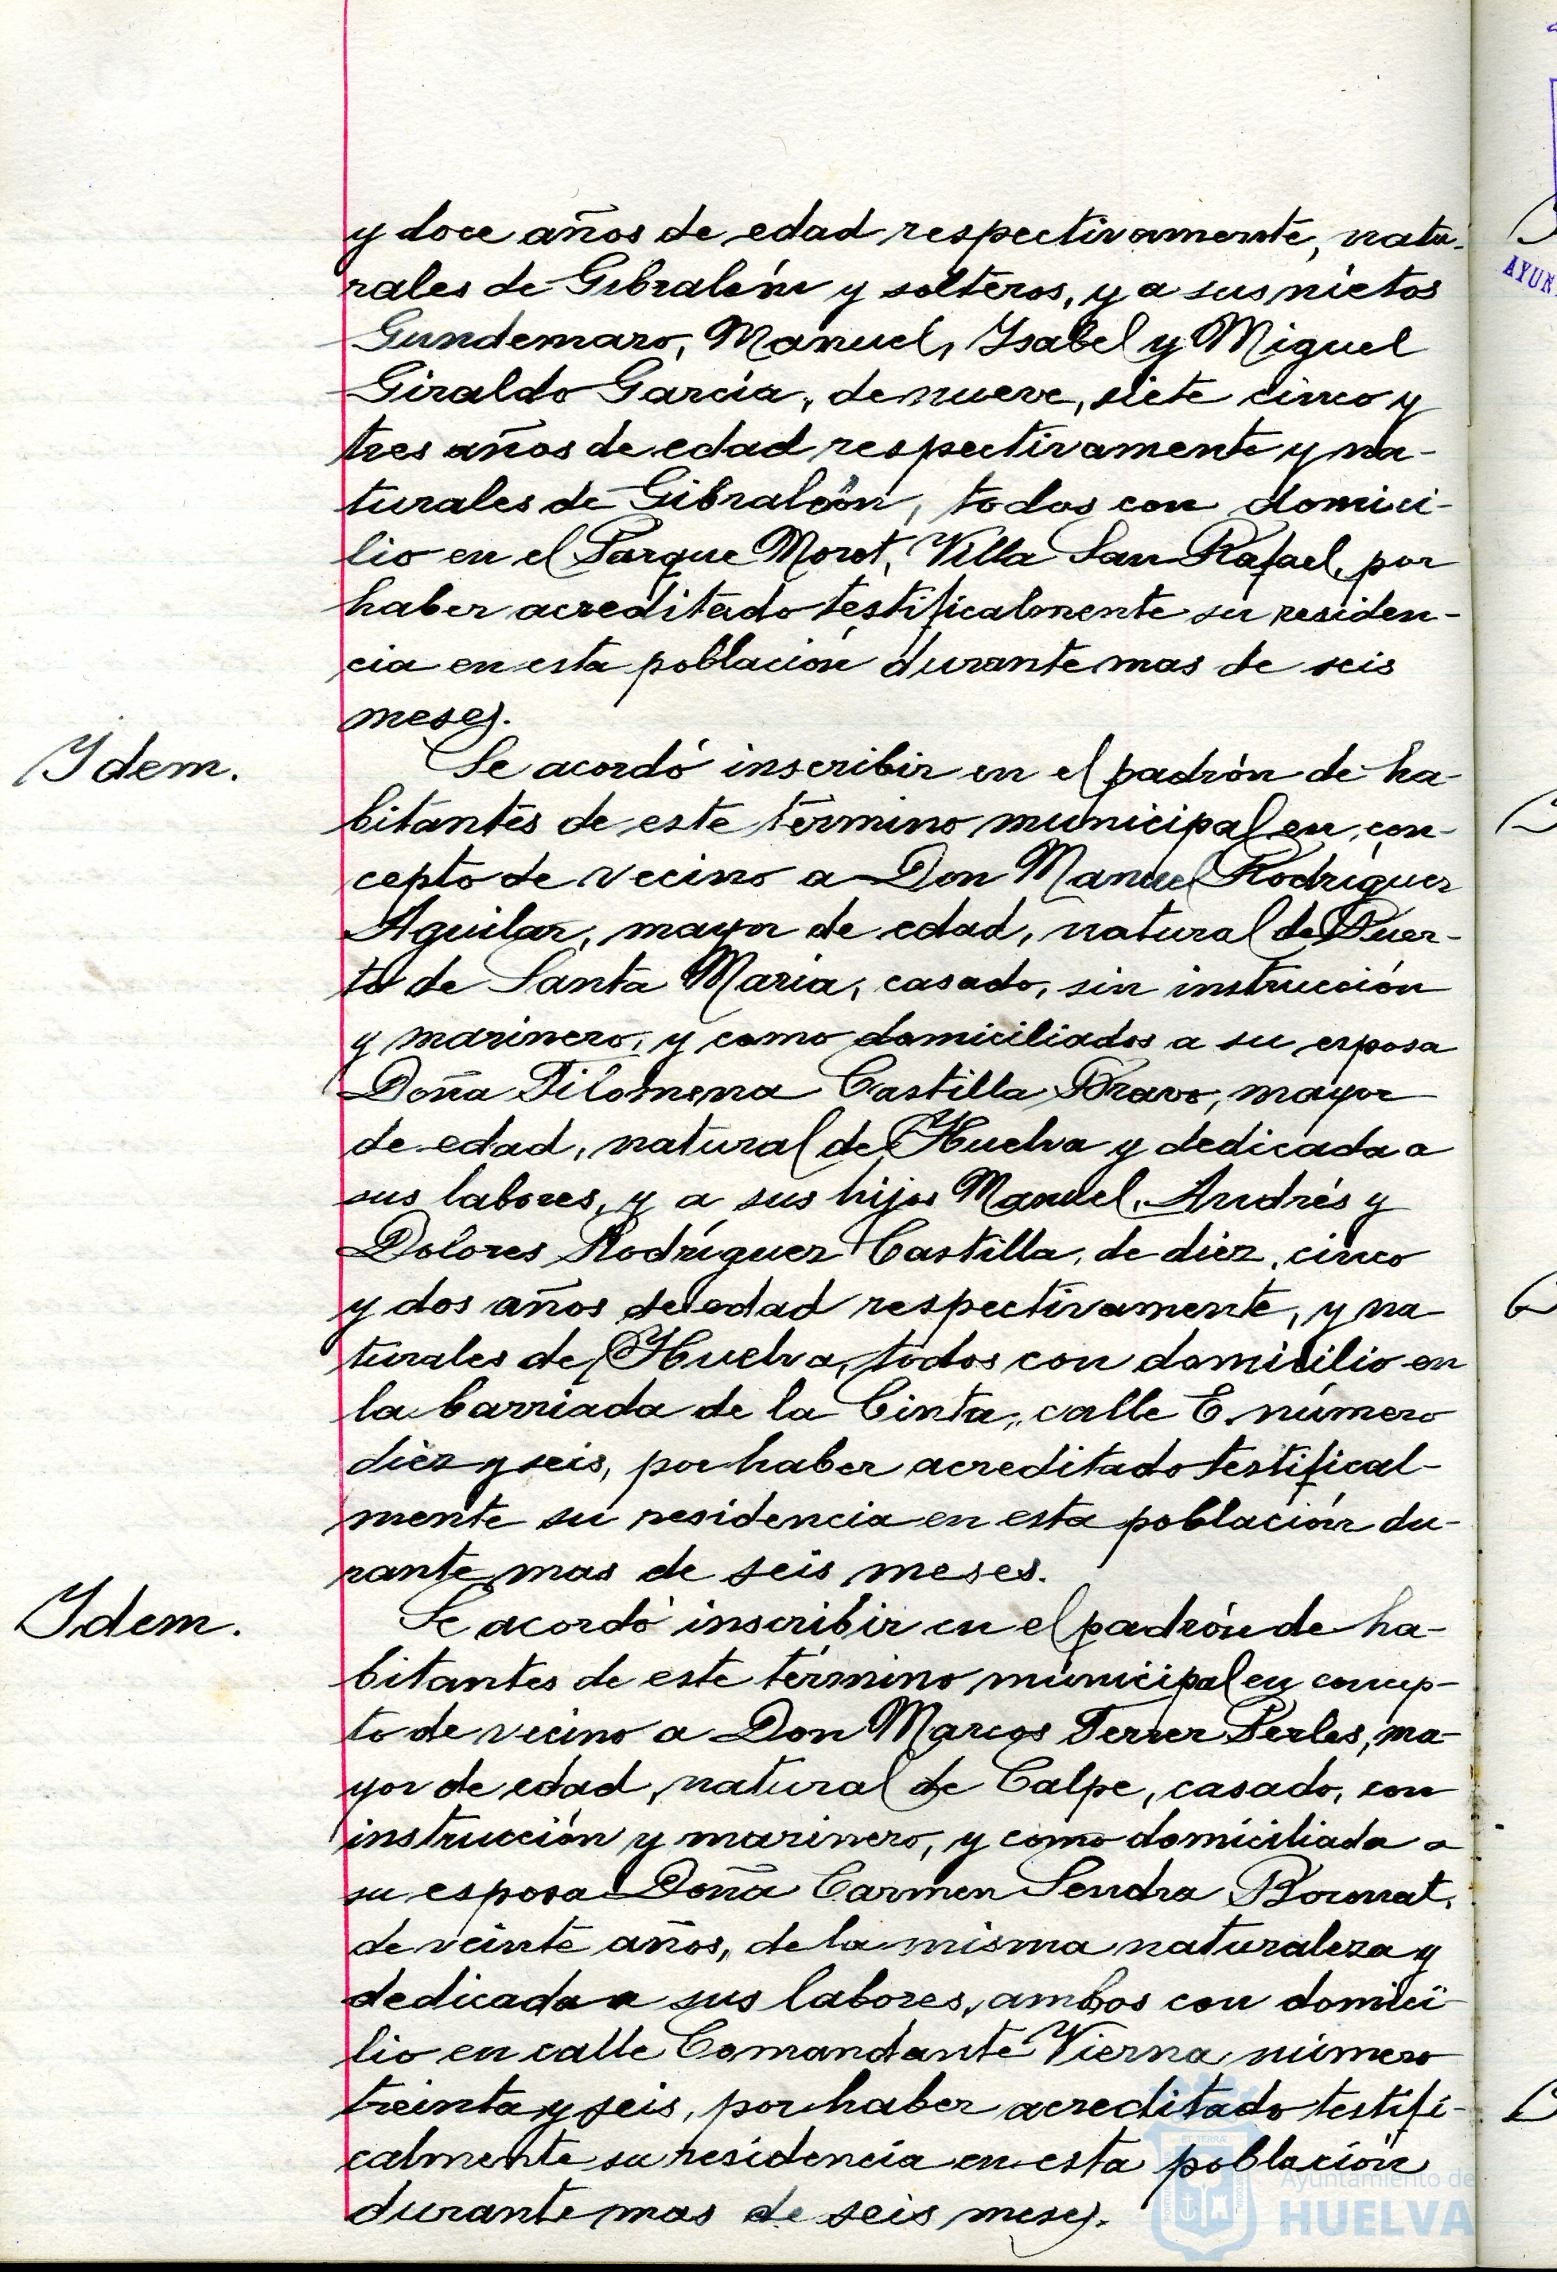 y doce años de edad respectivamente, natu-
rales de Gibraleón y solteros, y a sus nietos
Gundemaro, Manuel, Isabel y Miguel
Giraldo García, de nueve, siete cinco y
tres años de edad respectivamente y na-
turales de Gibraleón, todos con domici-
lio en el Parque Moret, Villa San Rafael, por
haber acreditado testificalmente su residen-
cia en esta población durante mas de seis
meses.
Idem.
Se acordó inscribir en el padrón de ha-
bitantes de este término municipal en con-
cepto de vecino a Don Manuel Rodríguez
Aguilar, mayor de edad, natural de Puer-
to de Santa María, casado, sin instrucción
y marinero, y como domiciliados a su esposa
Doña Filomena Castilla Bravo, mayor
de edad, natural de Huelva y dedicada a
sus labores, y a sus hijos Manuel, Andrés y
Dolores Rodríguez Castilla, de diez, cinco
y dos años de edad respectivamente, y na-
turales de Huelva, todos con domicilio en
la barriada de la Cinta, calle E. número
diez y seis, por haber acreditado testifical-
mente su residencia en esta población du-
rante mas de seis meses.
Idem.
Se acordó inscribir en el padrón de ha-
bitantes de este término municipal en concep-
to de vecino a Don Marcos Ferrer Perles, ma-
yor de edad, natural de Calpe, casado, con
instrucción y marinero, y como domiciliada a
su esposa Doña Carmen Sendra Boronat,
de veinte años, de la misma naturaleza y
dedicada a sus labores, ambos con domici-
lio en calle Comandante Vierna número
treinta y seis, por haber acreditado testifi-
calmente su residencia en esta población
durante mas de seis meses.
AYUN
Ayuntamiento de
HUELVA